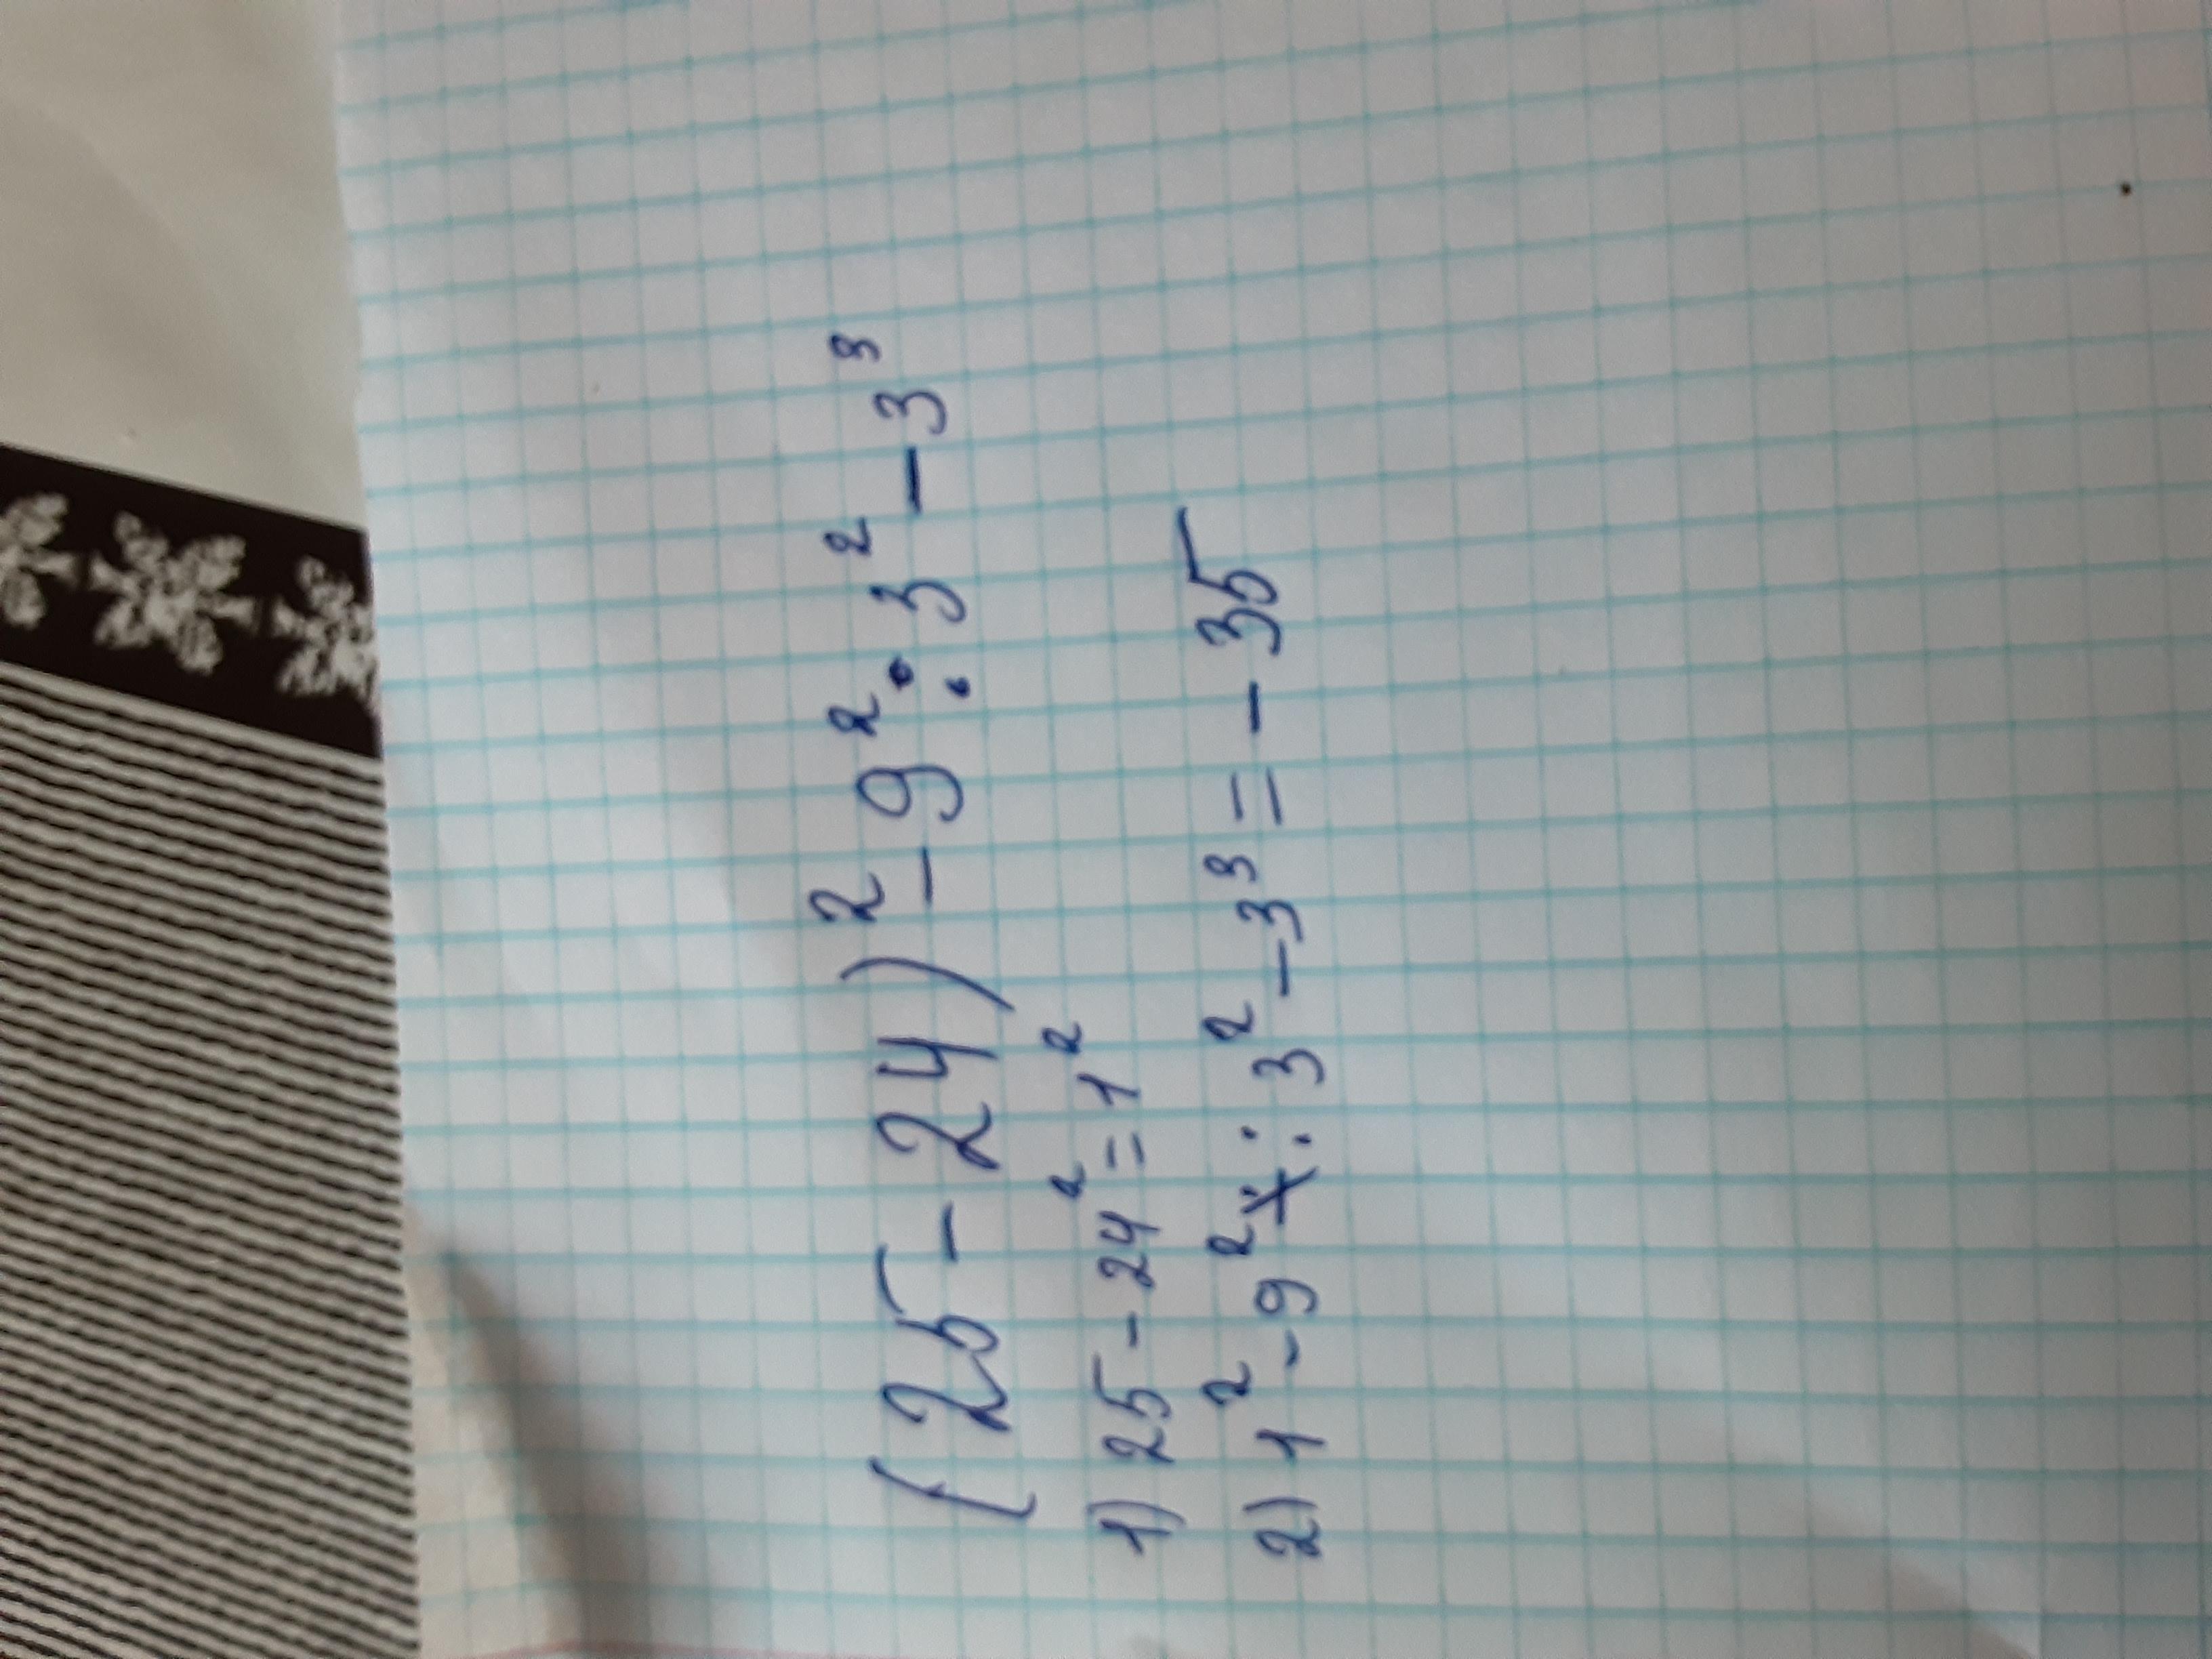 (25-24)²-9²:3²-3³
1) 25-24²=1²
2) 1²-9²:3²-3³=-35